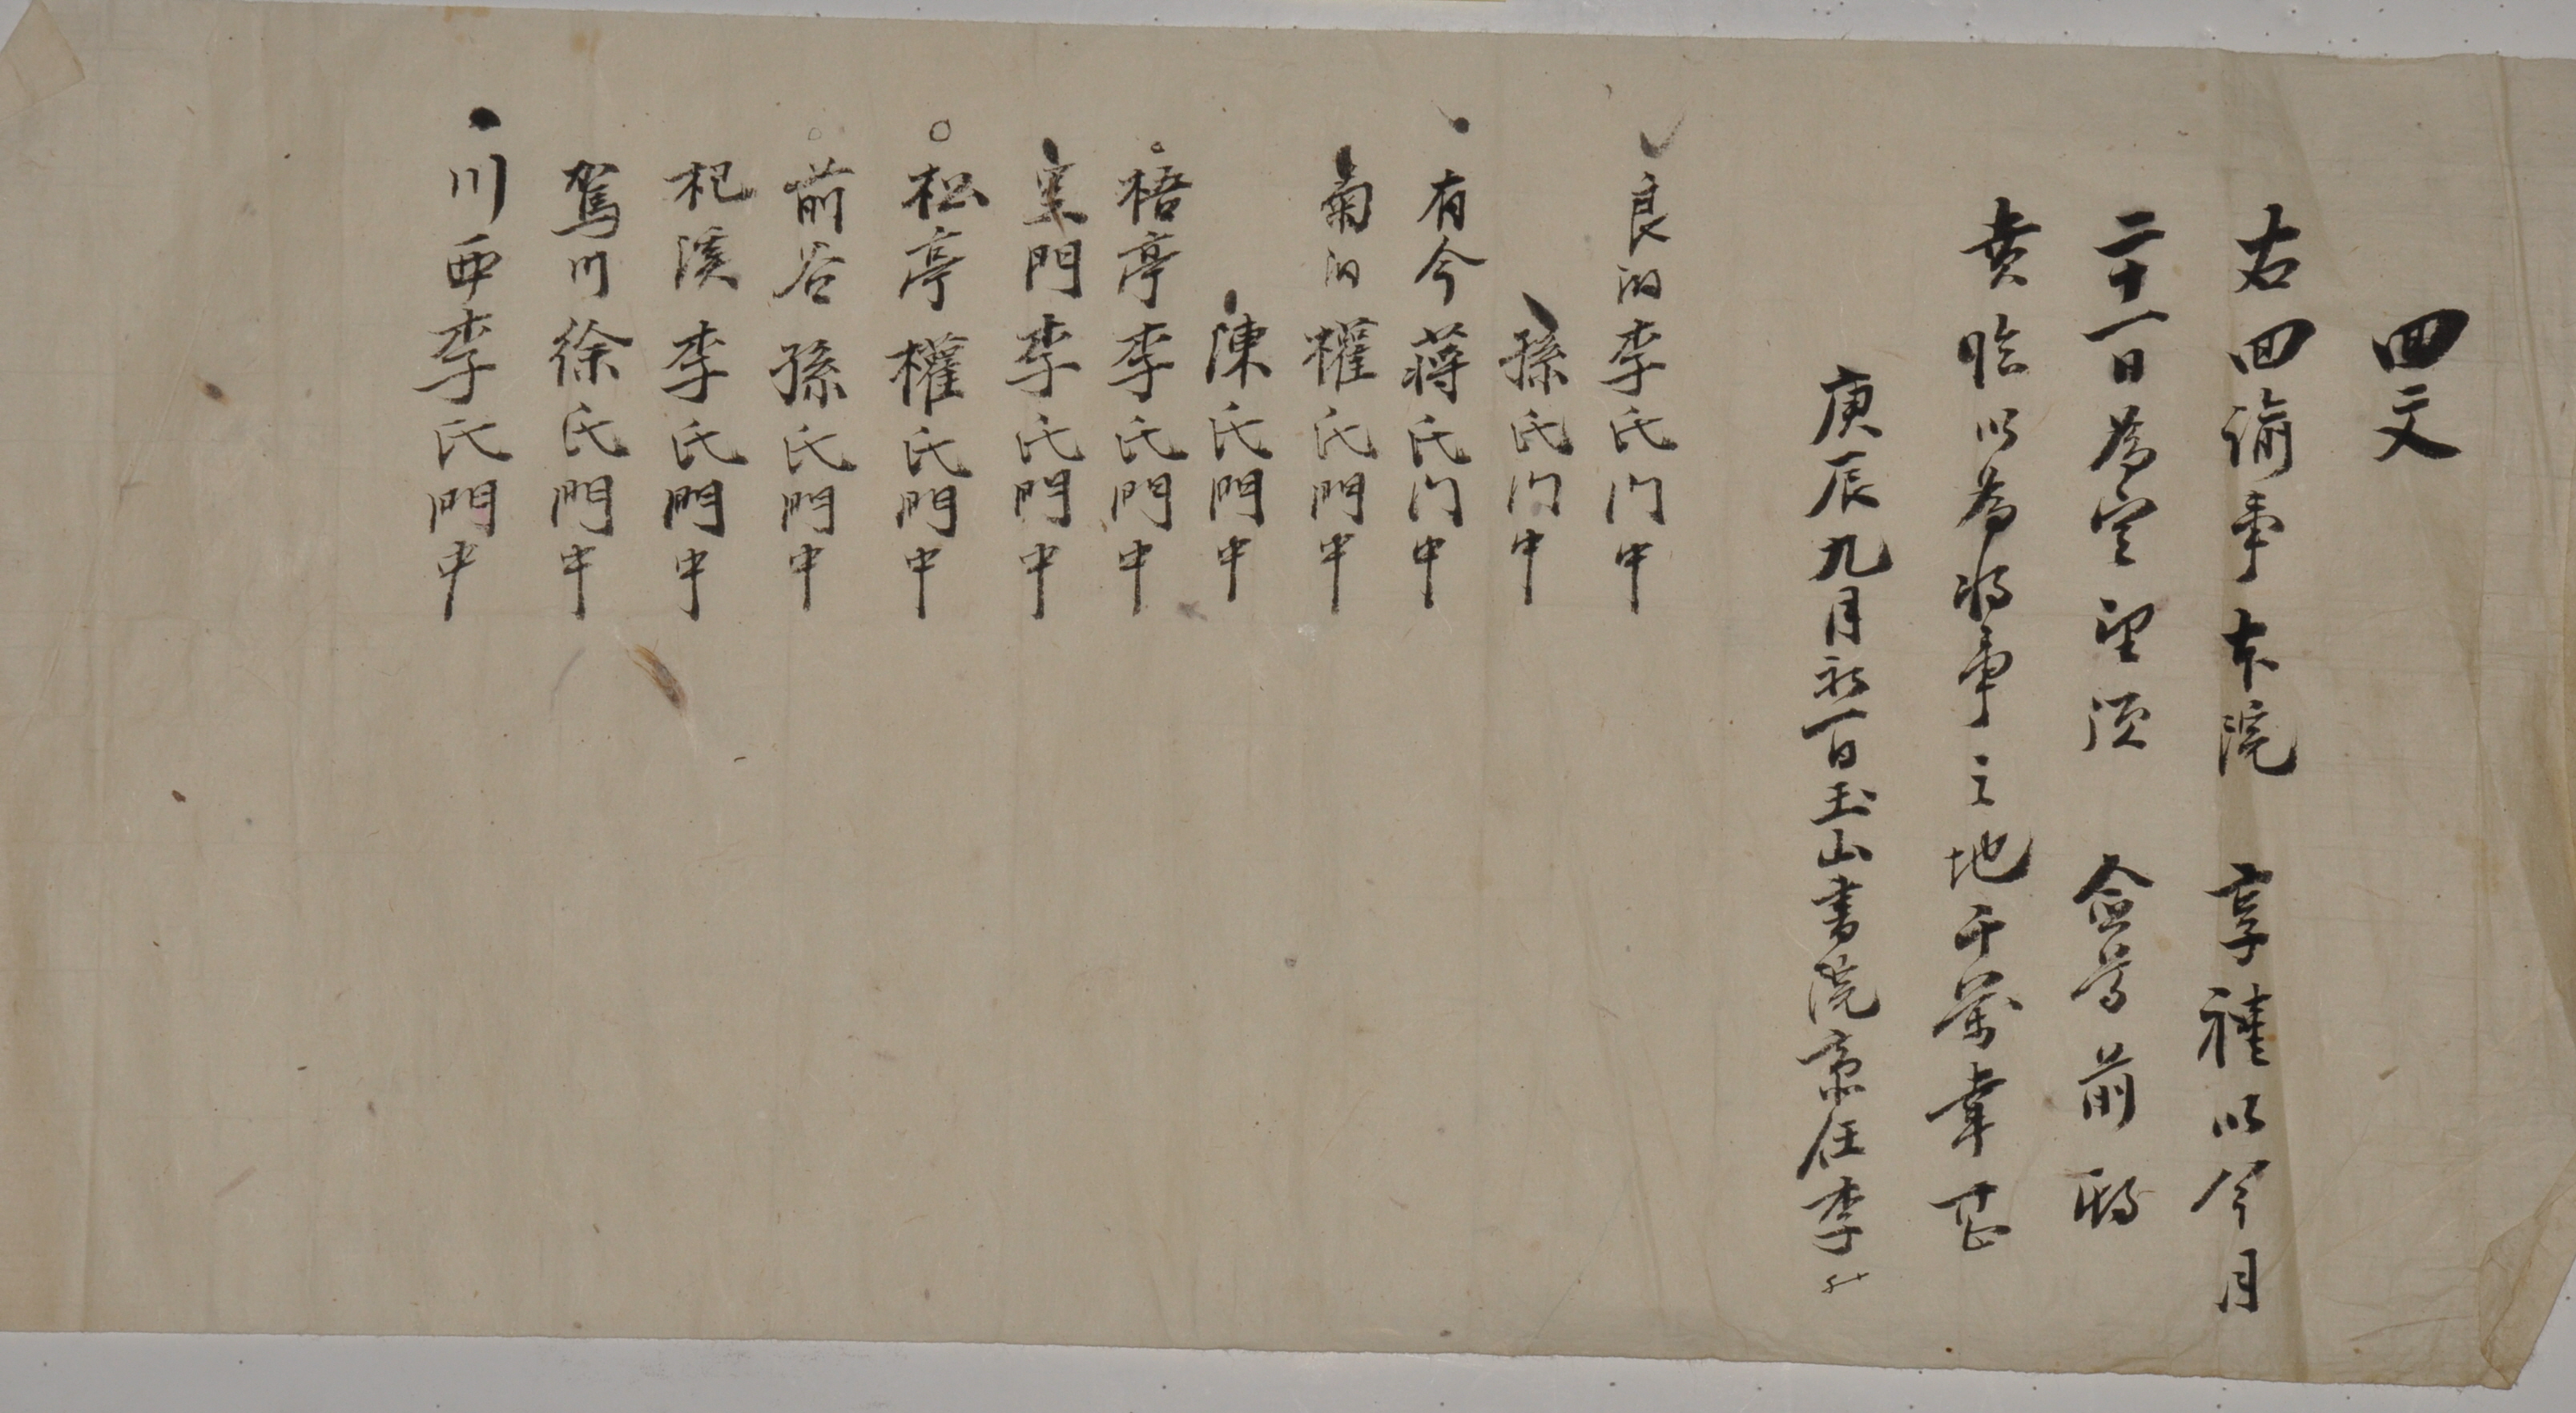 回文
右回諭事本院 享禮以今月
二十一日爲定望須 僉尊前期
賁臨以爲將事之地千萬幸甚
庚辰九月初一日玉山書院齋任李
良洞李氏门中
孫氏门中
有今蔣氏门中
菊洞權氏門中
陳氏門中
梧亭李氏門中
里門李氏門中
松亭權氏門中
前谷孫氏門中
杞溪李氏門中
鴛川徐氏門中
川西李氏門中